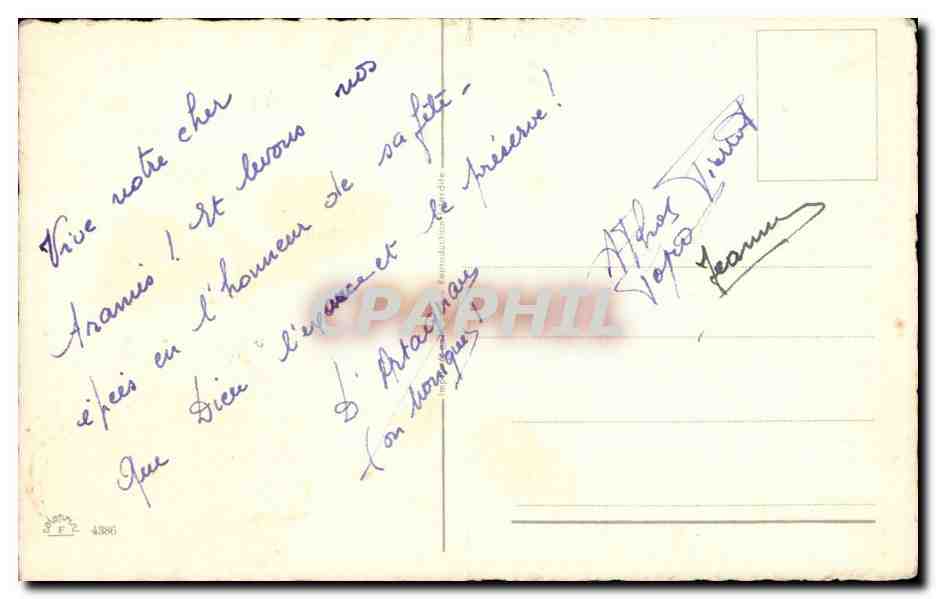 Vive notre cher
Aramis ! Et levons nos
épées en l'honneur de sa fête -
Que Dieu l'exauce et le préserve !
D'Artagnan
(ou Monique)
Athos
Jeanne
Reproduction interdite
CPAPHIL
F
4386